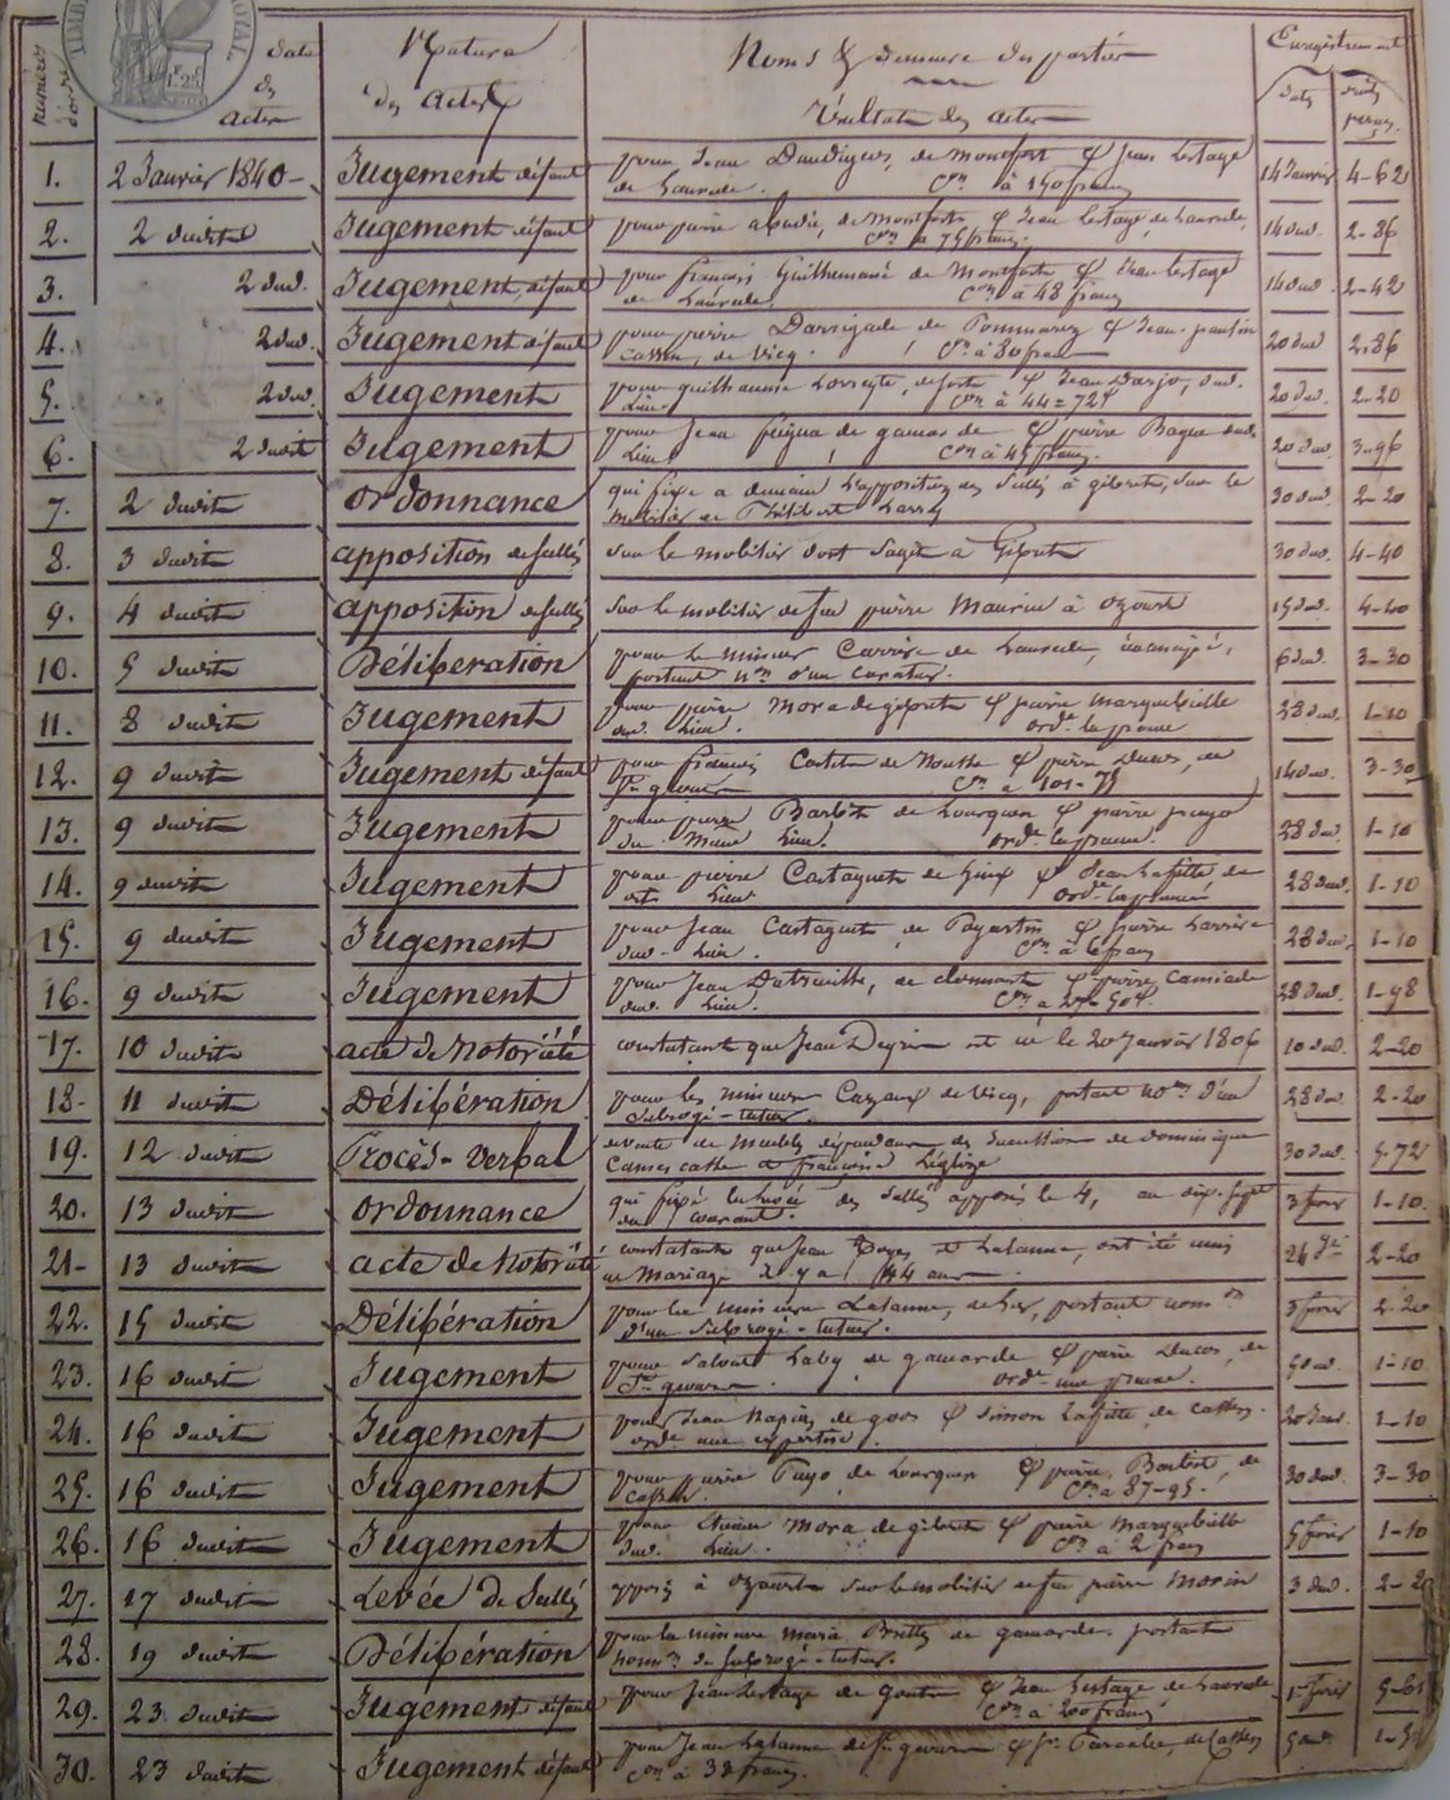 TIMBRE ROYAL
1F.25C
Numéros d'ordre
date des actes
Nature des actes
Noms & demeure des parties
Résultat des actes
Enregistrement
date
droits perçus
1. 2 Janvier 1840 Jugement défaut pour Jean de Montfort & Jean Lestage 14 Janvier 4-62
de Laurède. Con à 150 francs
2. 2 dudit Jugement défaut pour pierre abadie, de Montfort & Jean Lestage de Laurède 14 dud. 2-86
Con à 75 francs.
3. 2 dud. Jugement défaut pour françois de Montfort & Jean Lestage 14 dud. 2-42
de Laurède. Con à 48 francs
4. 2 dud. Jugement défaut pour pierre Darrigade de Pommarez & Jean 20 dud 2-86
Cassen, de Vicq. Con à 80 francs
5. 2 dud. Jugement pour guilhaume & Jean Darjo, dud. 20 dud. 2-20
Lieu. Con à 44=72c
6. 2 dudit Jugement pour Jean de gamarde & pierre dud. 20 dud. 3-96
Lieu Con à 45 francs.
7. 2 dudit ordonnance qui fixe a demain l'apposition des scellés à gibret, sur le 30 dud. 2-20
mobilier de
8. 3 dudit apposition de scellés sur le mobilier dont s'agit a Gibret 30 dud. 4-40
9. 4 dudit apposition de scellés sur le mobilier de feu pierre à ozourt 15 dud. 4-40
10. 5 dudit Délibération pour le mineur Carrère de Laurède, émancipé, 6 dud. 3-30
portant non d'un curateur.
11. 8 dudit Jugement pour pierre Mora de gibret & pierre marquebielle 28 dud. 1-10
dud. Lieu. orde la preuve
12. 9 dudit Jugement défaut pour françois de Nousse & pierre Ducos, de 14 dud. 3-30
St geours Con a 101-75
13. 9 dudit Jugement pour pierre de Lourquen & pierre puyo 28 dud. 1-10
du même Lieu. orde la preuve.
14. 9 dudit Jugement pour pierre Castagnet de & Jean Lafitte de 28 dud. 1-10
Lieu orde la preuve
15. 9 dudit Jugement pour Jean Castagnet de Poyartin & pierre Larrère 28 dud. 1-10
dud. Lieu. Con à 6 francs
16. 9 dudit Jugement pour Jean de clermont & pierre Camiade 28 dud. 1-98
dud. Lieu. Con a 27-50c.
17. 10 dudit acte de Notoriété constatant que Jean est né le 20 Janvier 1806 10 dud. 2-20
18. 11 dudit Délibération pour les mineurs Cazaux de Vicq, portant non d'un 28 dud 2-20
subrogé-tuteur.
19. 12 dudit Procès-verbal de vente de meubles dépendans des succession de dominique 30 dud. 5-72
et françoise Léglize
20. 13 dudit ordonnance qui fixe la levée des scellés apposés le 4, au dix-sept 3 février 1-10.
du courant.
21. 13 dudit acte de Notoriété constatant que Jean & Lalanne, ont été unis 2-20
en mariage il y a 44 ans.
22. 15 dudit Délibération pour les mineurs Lalanne, portant nomon 3 février 2-20
d'un subrogé-tuteur.
23. 16 dudit Jugement pour Salvat Laby de gamarde & pierre Ducos, de 5 dud. 1-10
St geours. orde une preuve.
24. 16 dudit Jugement pour Jean de goos & Simon Laffitte de Cassen. 1-10
orde une expertise.
25. 16 dudit Jugement pour pierre Puyo de Lourquen & pierre de 30 dud. 3-30
Cassen. Con a 87-95.
26. 16 dudit Jugement pour Mora de gibret & pierre marquebielle 5 février 1-10
dud. Lieu. Con à 2 francs
27. 17 dudit Levée de Scellés apposés à ozourt sur le mobilier de feu pierre Morin 3 dud. 2-2
28. 19 dudit Délibération pour la mineure marie de gamarde. portant
nomon de subrogé-tuteur.
29. 23 dudit Jugement défaut pour Jean Lestage de & Jean Lestage de Laurède 1er février
Con à 200 francs
30. 23 dudit Jugement défaut pour Jean Lalanne de St geours & de Cassen 5 dud.
Con à 32 francs.